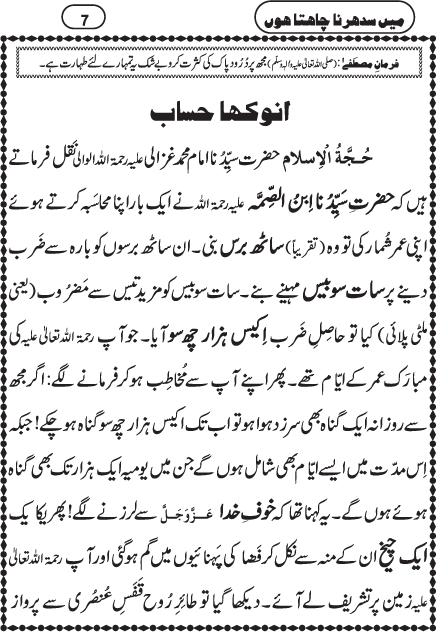 میں سدھرنا چاہتا ہوں
7
فرمانِ مصطفےٰ: (صلی اللہ تعالیٰ علیہ والہ وسلم) مجھ پر دُرُود پاک کی کثرت کرو بے شک یہ تمہارے لئے طہارت ہے۔
انوکھا حساب
حُجَّۃُ الْاِسلام حضرت سیِّدُنا امام محمد غزالی علیہ رحمۃ اللہ الوالی نقل فرماتے
ہیں کہ حضرتِ سیِّدُنا اِبنُ الصِّمَّہ علیہ رحمۃ اللہ نے ایک بار اپنا محاسبہ کرتے ہوئے
اپنی عمر شُمار کی تو وہ (تقریباً) ساٹھ برس بنی۔ ان ساٹھ برسوں کو بارہ سے ضَرب
دینے پر سات سو بیس مہینے بنے۔ سات سو بیس کو مزید تیس سے مَضرُوب (یعنی
ملٹی پلائی) کیا تو حاصلِ ضَرب اِکیس ہزار چھ سو آیا۔ جو آپ رحمۃ اللہ تعالیٰ علیہ کی
مبارَک عمر کے ایّام تھے۔ پھر اپنے آپ سے مُخاطِب ہو کر فرمانے لگے: اگر مجھ
سے روزانہ ایک گناہ بھی سرزد ہوا ہو تو اب تک اکیس ہزار چھ سو گناہ ہو چکے! جبکہ
اِس مدّت میں ایسے ایّام بھی شامل ہوں گے جن میں یومیہ ایک ہزار تک بھی گناہ
ہوئے ہوں گے۔ یہ کہنا تھا کہ خوفِ خدا عَزَّوَجَلَّ سے لرزنے لگے! پھر یکایک
ایک چیخ ان کے منہ سے نکل کر فَضا کی پَہنائیوں میں گم ہو گئی اور آپ رحمۃ اللہ تعالیٰ
علیہ زمین پر تشریف لے آئے۔ دیکھا گیا تو طائرِ رُوح قَفَسِ عُنصُری سے پرواز